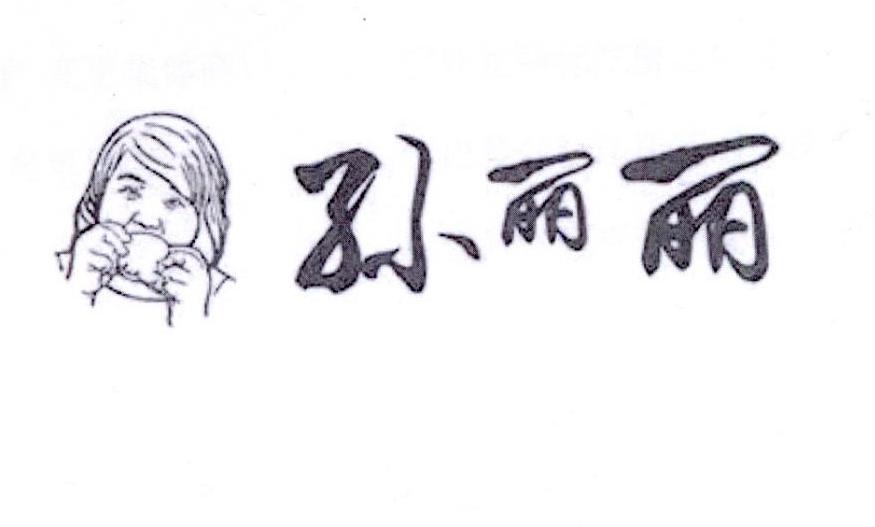 孙丽丽